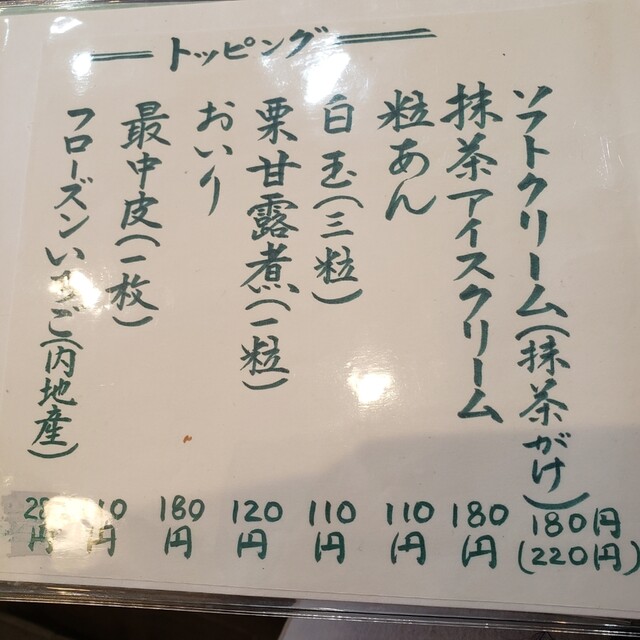 トッピング
ソフトクリーム(抹茶がけ) 180円 (220円)
抹茶アイスクリーム 180円
粒あん 110円
白玉(三粒) 110円
栗甘露煮(一粒) 120円
おいり 180円
最中皮(一枚) 円
フローズンいちご(内地産) 円